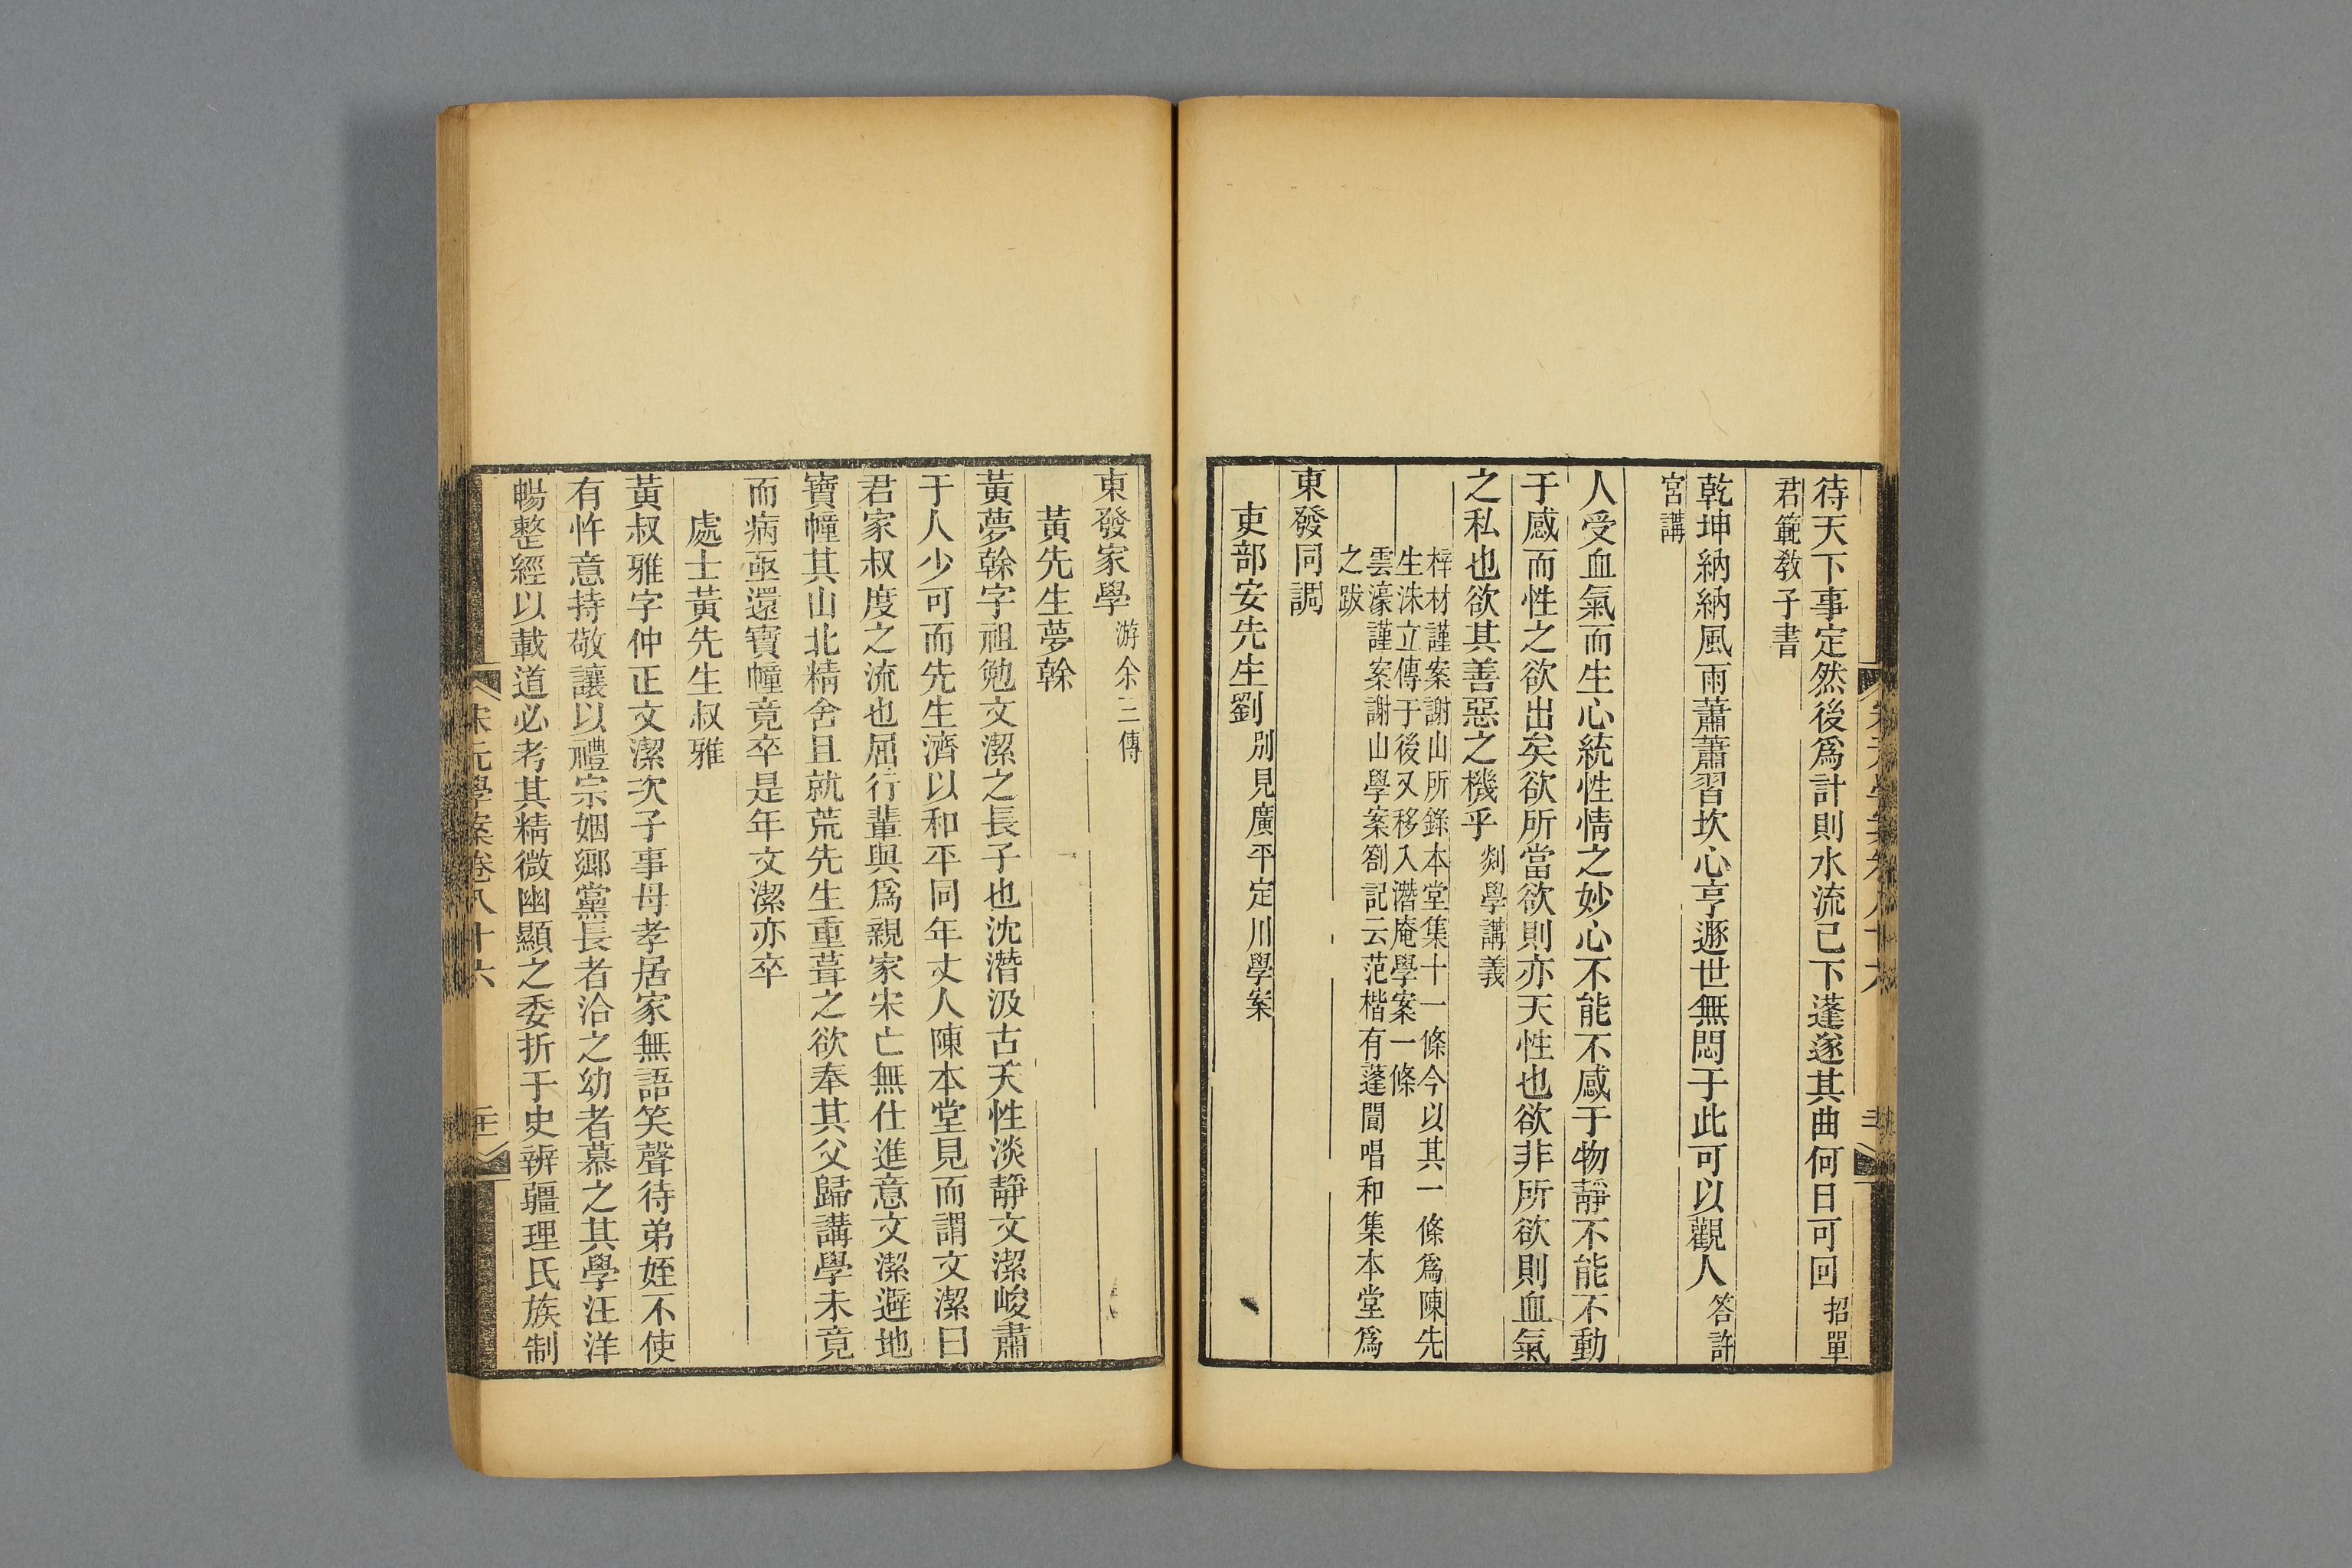 待天下事定然後爲計則水流已下蓬遂其曲何日可回招單
君範教子書
乾坤納納風雨蕭蕭習坎心亨遯世無悶于此可以觀人答許
宮講
人受血氣而生心統性情之妙心不能不感于物靜不能不動
于感而性之欲出矣欲所當欲則亦天性也欲非所欲則血氣
之私也欲其善惡之機乎剡學講義
梓材謹案謝山所錄本堂集十一條今以其一條爲陳先
生洙立傳于後又移入潛庵學案一條
雲濠謹案謝山學案劄記云范楷有蓬閬唱和集本堂爲
之跋
東發同調
吏部安先生劉別見廣平定川學案
東發家學游余三傳
黃先生夢榦
黃夢榦字祖勉文潔之長子也沈潛汲古天性淡靜文潔峻肅
于人少可而先生濟以和平同年丈人陳本堂見而謂文潔曰
君家叔度之流也屈行輩與爲親家宋亡無仕進意文潔避地
寶幢其山北精舍且就荒先生重葺之欲奉其父歸講學未竟
而病亟還寶幢竟卒是年文潔亦卒
處士黃先生叔雅
黃叔雅字仲正文潔次子事母孝居家無語笑聲待弟姪不使
有忤意持敬讓以禮宗姻鄉黨長者洽之幼者慕之其學汪洋
暢整經以載道必考其精微幽顯之委折于史辨疆理氏族制
宋元學案卷八十六